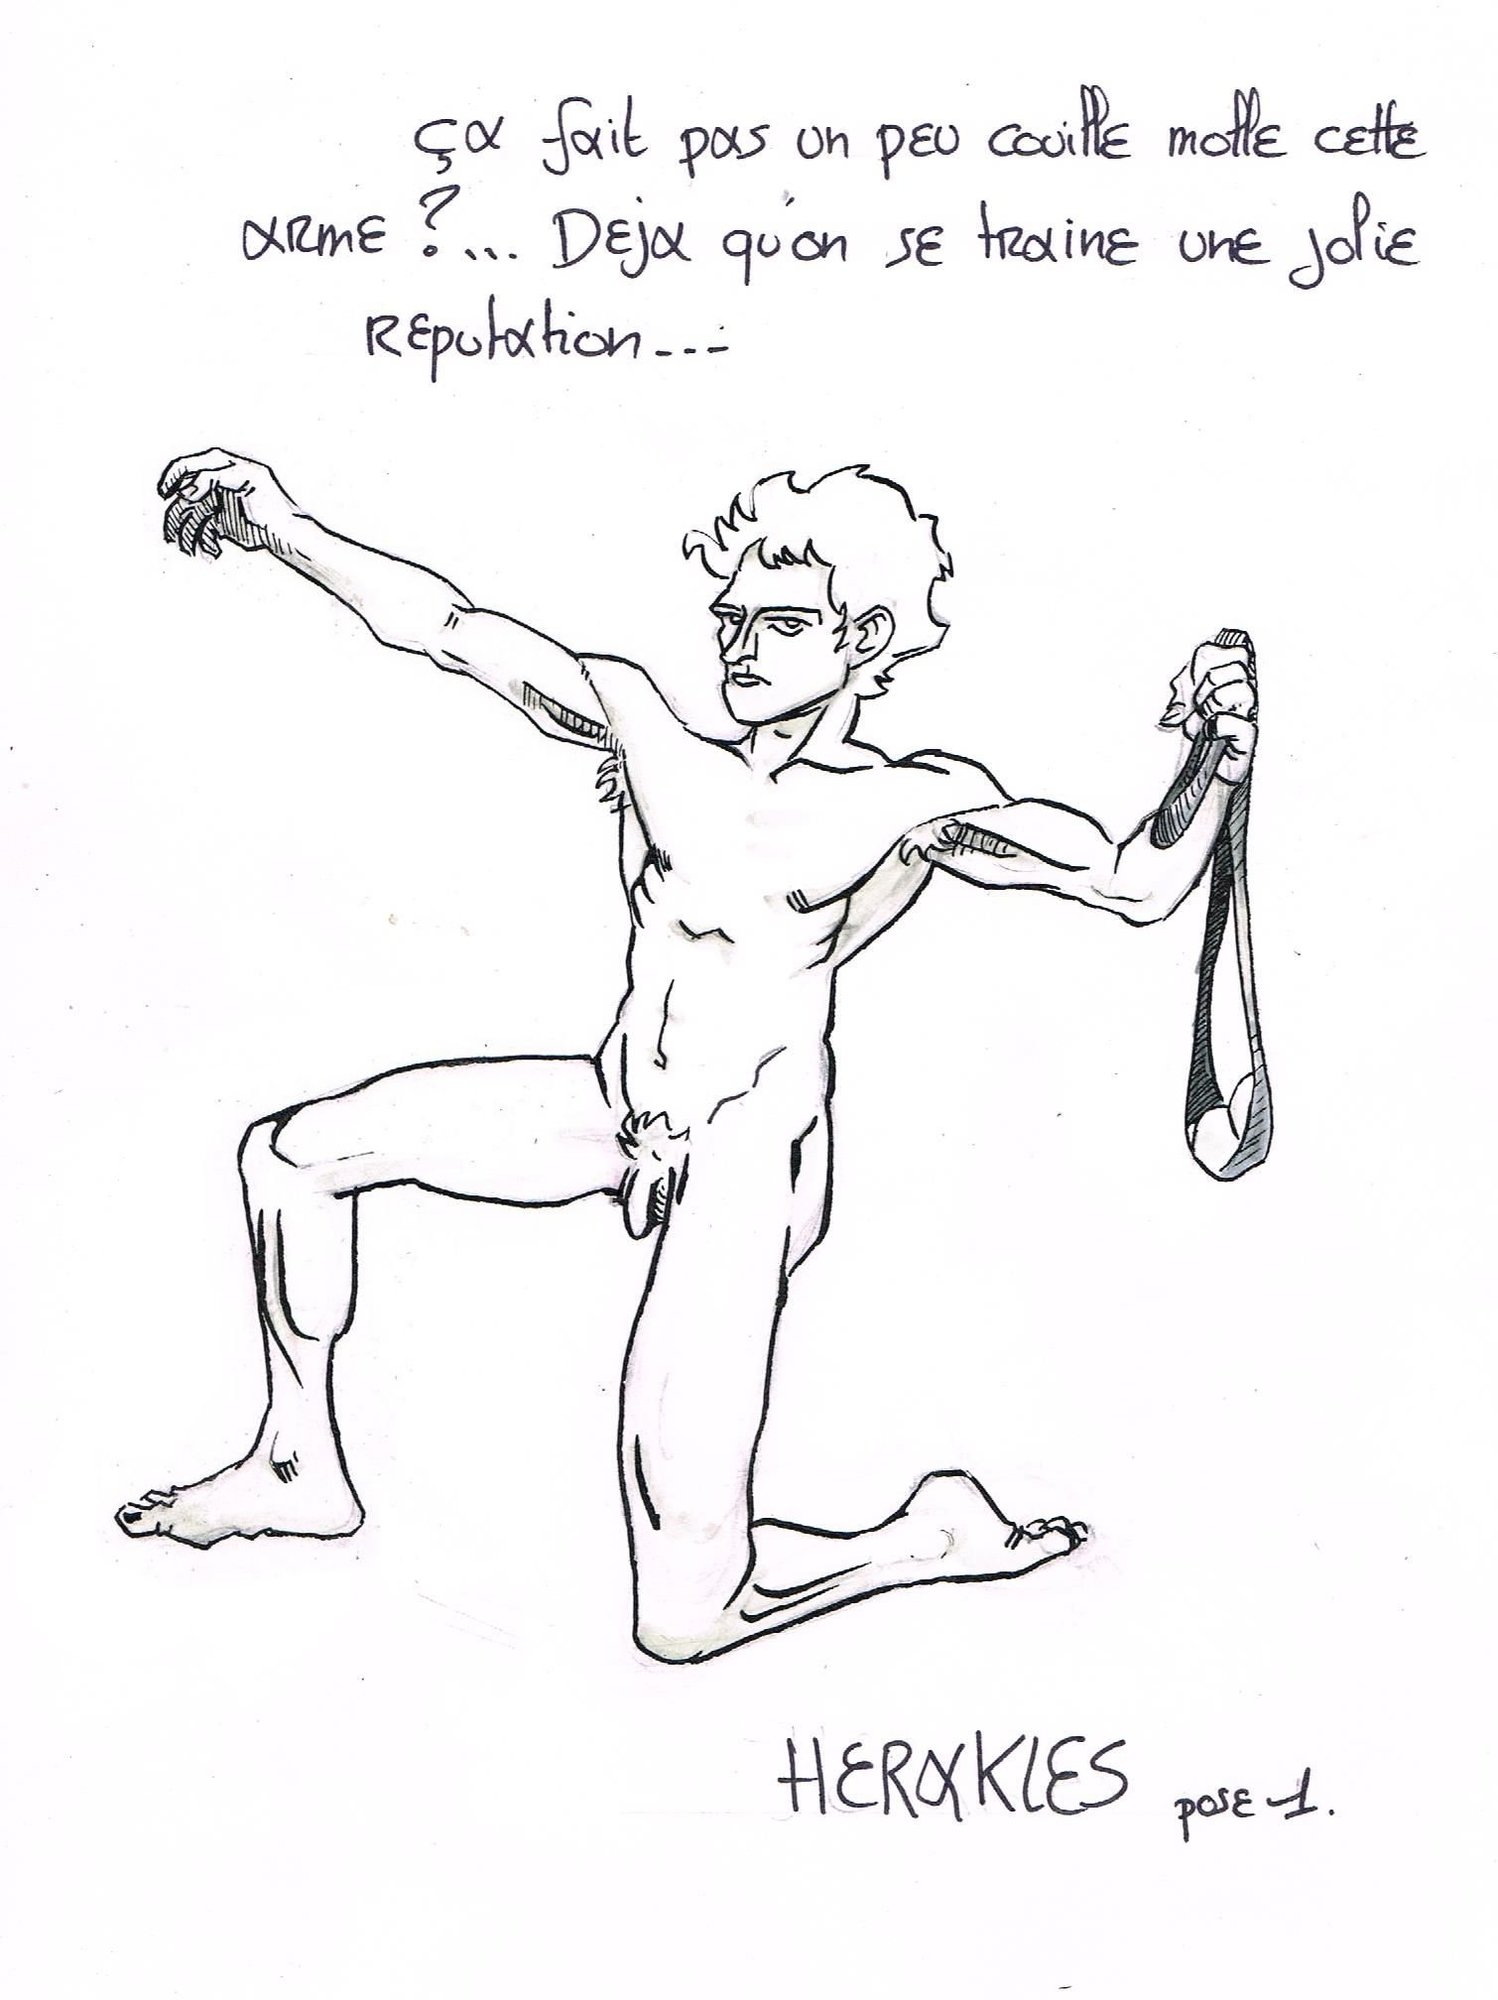 ça fait pas un peu couille molle cette
arme ?... Deja qu'on se traine une jolie
Reputation...
HERAKLES pose 1.